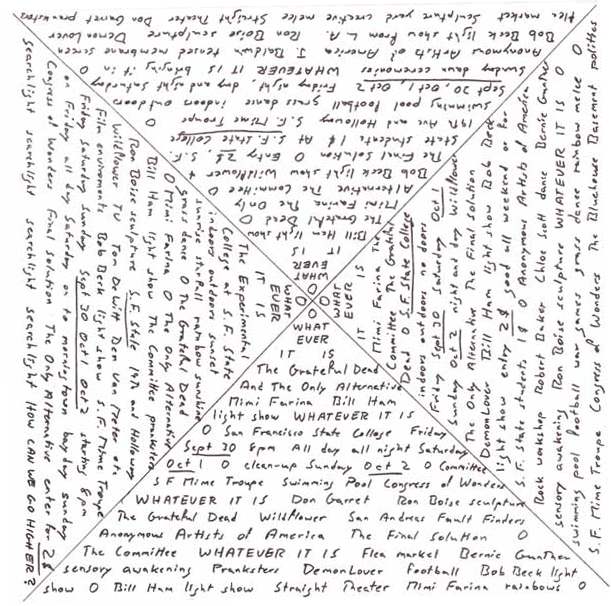 WHAT
EVER
IT IS
The Grateful Dead
And The Only Alternative
Mimi Farina Bill Ham
light show WHATEVER IT IS
O San Francisco State College Friday
Sept 30 8pm All day all night Saturday
Oct 1 O clean-up Sunday Oct 2 O Committee
S F Mime Troupe Swimming Pool Congress of Wonders
WHATEVER IT IS Don Garret Ron Boise sculpture
The Grateful Dead Wildflower San Andreas Fault Finders
Anonymous Artists of America The Final Solution O
The Committee WHATEVER IT IS Flea market Bernie Gunther
sensory awakening Pranksters DemonLover football Bob Beck light
show O Bill Ham light show Straight Theater Mimi Farina rainbows O
WHAT
EVER
IT IS
The Experimental
College at S.F. State
indoors outdoors sunset
sunrise starfall rainbow sunshine
grass dance O The Grateful Dead
O Mimi Farina O The Only Alternative
Bill Ham light show The Committee pranksters
Ron Boise sculpture S.F. State 19th and Holloway
Wildflower TV Tom DeWitt Don Van Meter etc
Film enviroments Bob Beck light show S. F. Mime Troupe
Friday Saturday Sunday Sept 30 Oct 1 Oct 2 starting 8 pm
on Friday all day Saturday on to monday town bay day sunday
Congress of Wonders Final Solution The Only Alternative enter for 2$
searchlight searchlight searchlight searchlight HOW CAN WE GO HIGHER?
WHAT
EVER
IT IS
Bill Ham light show
The Grateful Dead O
Mimi Farina The Only
Alternative The Committee O
Bob Beck light show Wildflower +
The Final Solution O Entry 2$, S.F.
State students 1$ At S.F. State College
19th Ave and Holloway S.F. Mime Troupe O
Swimming pool football grass dance indoors outdoors
Sept 30, Oct 1, Oct 2 Friday night, day and night Saturday
Sunday dance ceremonies WHATEVER IT IS bringing it in O
Anonymous Artists of America J. Baldwin tensed membrane screen
Bob Beck light show from L.A. Ron Boise sculpture Demon Lover
flea market Sculpture yard creative melee Straight Theater Don Garret Pranksters
WHAT
EVER
IT IS
Mimi Farina The
Committee The Grateful
Dead O S.F. State College
indoors outdoors no doors
Friday Sept 30 Saturday Oct 1
Sunday Oct 2 night and day Wildflower
The Only Alternative The Final Solution
DemonLover Bill Ham light show Bob Beck
light show entry 2$ good all weekend or for
S.F. State students 1$ O Anonymous Artists of America
Rock workshop Robert Baker Chloe Scott dance Bernie Gunther
sensory awakening Ron Boise sculpture WHATEVER IT IS O
swimming pool football war games grass dance rainbow melee O
S.F. Mime Troupe Congress of Wonders The Bluehouse Basement politics